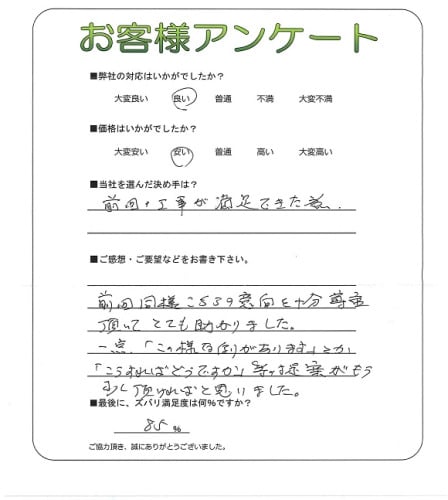 お客様アンケート
■弊社の対応はいかがでしたか?
大変良い 良い 普通 不満 大変不満
■価格はいかがでしたか?
大変安い 安い 普通 高い 大変高い
■当社を選んだ決め手は?
前回の工事が満足できた為、
■ご感想・ご要望などをお書き下さい。
前回同様こちらの意向を十分尊重
頂いてとても助かりました。
一点、「この様な例があります」とか
「こうすればどうですか」等の提案がもう
少し頂ければと思いました。
■最後に、ズバリ満足度は何%ですか?
85 %
ご協力頂き、誠にありがとうございました。